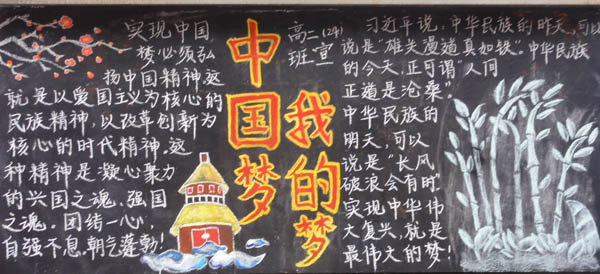 实现中国
梦必须弘
扬中国精神。这
就是以爱国主义为核心的
民族精神，以改革创新为
核心的时代精神。这
种精神是凝心聚力
的兴国之魂、强国
之魂。团结一心，
自强不息，朝气蓬勃！
中国梦
我的梦
高二(24)
班 宣
习近平说，中华民族的昨天，可以
说是“雄关漫道真如铁”。中华民族
的今天，正可谓“人间
正道是沧桑”
中华民族的
明天，可以
说是“长风
破浪会有时”。
实现中华伟
大复兴，就是
最伟大的梦！